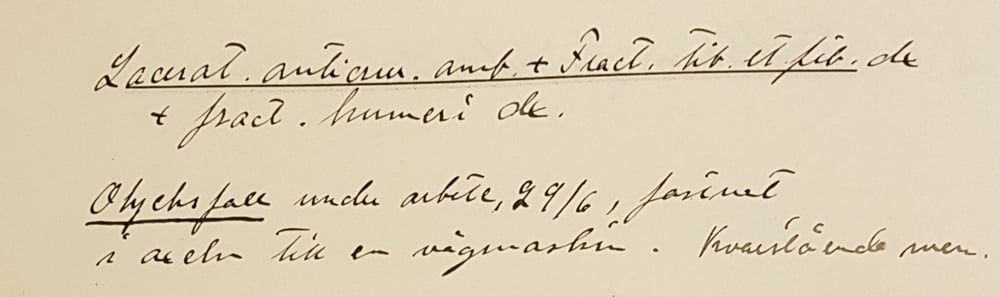 Lacerat. anticrur. amb. + Fract. tib. et fib. dx
+ fract. humeri dx.
Olycksfall under arbete, 29/6, fastnat
i axeln till en vägmaskin. Kvarstående men.